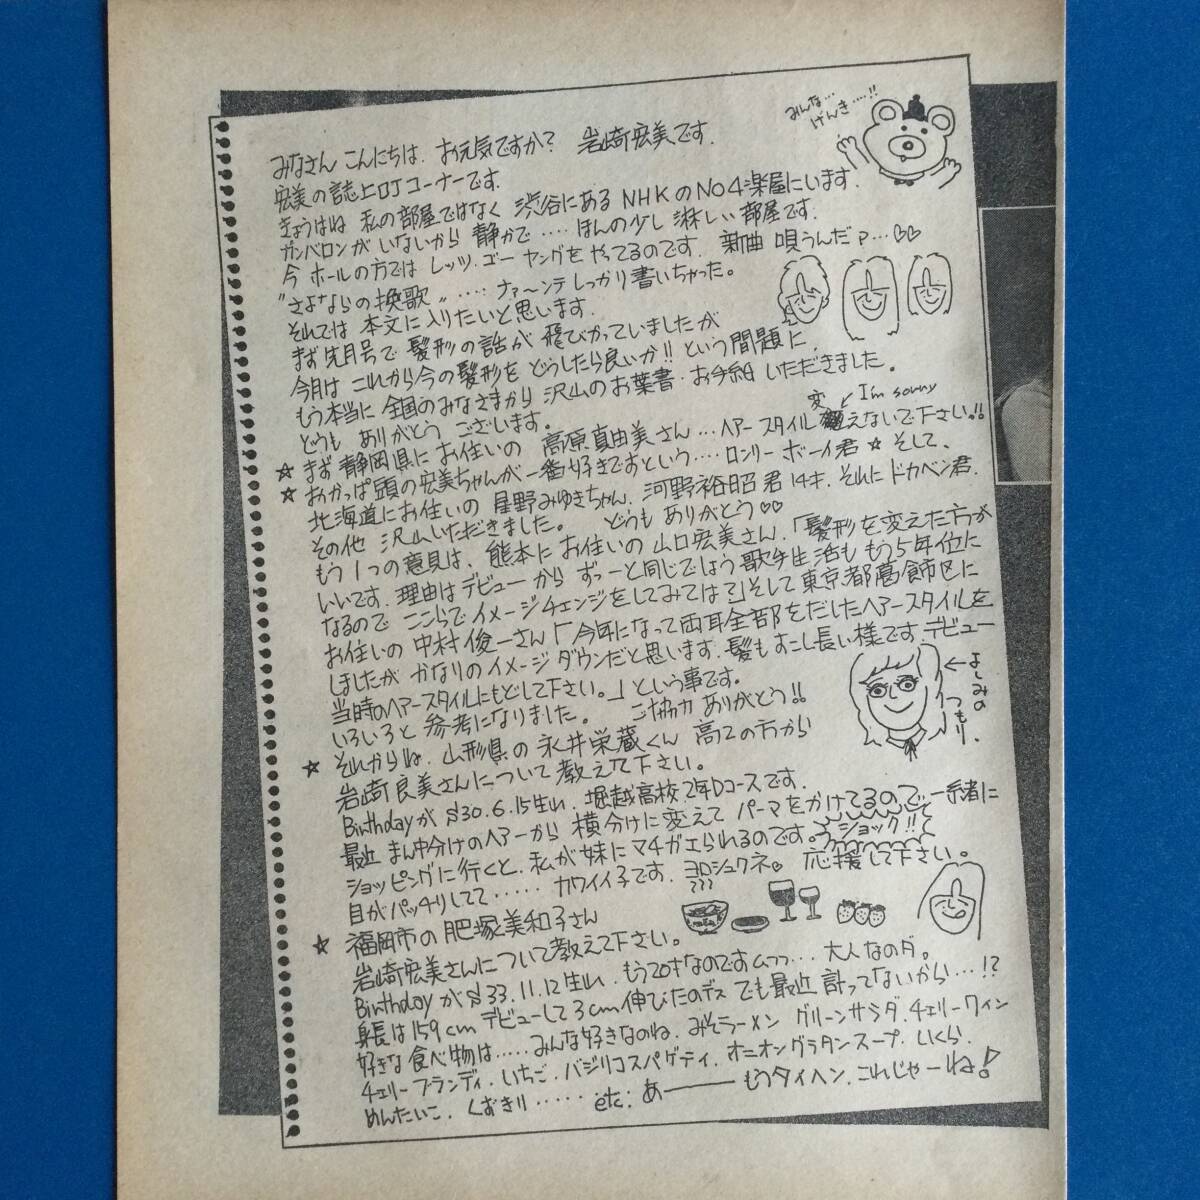 みんな…
げんき……!!
みなさん こんにちは. お元気ですか? 岩崎宏美です.
宏美の誌上DJコーナーです.
きょうはね 私の部屋ではなく 渋谷にある NHKのNo4楽屋にいます.
ガンバロンが いないから 静かで…. ほんの少し 淋しい部屋です.
今 ホールの方では レッツ.ゴー ヤングをやってるのです. 新曲 唄うんだ…♡♡
"さよならの挽歌"…. ナァ〜ンテ しっかり書いちゃった。
それでは 本文に入りたいと思います.
まず先月号で 髪形の話が 飛びかっていましたが
今月は これから今の髪形を どうしたら良いか!! という問題に.
もう本当に 全国のみなさまから 沢山のお葉書・お手紙 いただきました.
どうも ありがとう ございます.
変 ↙ I'm sorry
☆ まず 静岡県にお住いの 高原真由美さん…ヘアースタイル えないで下さい!!
☆ おかっぱ頭の宏美ちゃんが一番好きですという….ロンリーボーイ君☆ そして.
北海道にお住いの 星野みゆきちゃん. 河野裕昭君 14才. それに ドカベン君.
その他 沢山いただきました。 どうも ありがとう♡♡
もう1つの意見は、熊本に お住いの 山口宏美さん.「髪形を変えた方が
いいです. 理由はデビューから ずっーと同じでしょう?歌手生活も もう5年位に
なるので ここらでイメージチェンジをしてみては?」そして 東京都葛飾区に
お住いの 中村俊一さん「今年になって両耳全部をだしたヘアースタイルを
しましたが かなりのイメージダウンだと思います. 髪もすこし長い様です. デビュー
当時のヘアースタイルにもどして下さい。」という事です.
いろいろと 参考になりました. ご協力 ありがとう!!
←よしみの
つもり.
☆ それからね. 山形県の 永井栄蔵くん 高2の方から
岩崎良美さんについて教えて下さい。
Birthdayが S30.6.15生れ. 堀越高校 2年Dコースです.
最近 まん中分けのヘアーから 横分けに変えて パーマをかけてるので 一緒に
ショッピングに行くと. 私が妹にマチガエられるのです. ショック!!
目がパッチリしてて…… カワイイ子です. ヨロシュウネ♡ 応援して下さい。
☆ 福岡市の 肥塚美和子さん
岩崎宏美さんについて教えて下さい。
BirthdayがS33.11.12生れ. もう20才なのです… 大人なのダ。
身長は159cm デビューして3cm伸びたのデス でも最近 計ってないから…!?
好きな食べ物は….. みんな好きなのね. みそラーメン グリーンサラダ. チェリーワイン
チェリーブランディ. いちご. バジリコスパゲティ. オニオングラタンスープ. いくら.
めんたいこ. くずきり….. etc. あ――― もうタイヘン. これじゃーね!